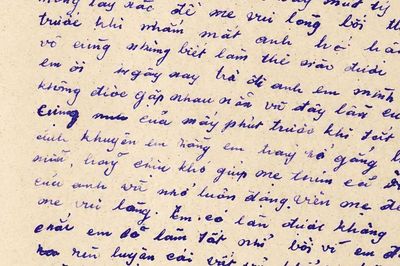 mong lấy xác để mẹ vui lòng bởi
trước khi nhắm mắt anh
vô cùng nhưng biết làm thế nào được
em ơi ngày nay trở đi anh em mình
không được gặp nhau nữa và đây lần
cùng của mấy phút trước khi tắt
anh khuyên em rằng em hãy cố gắng
nữa, hãy chịu khó giúp mẹ thêm cả
của anh và nhớ luôn động viên mẹ để
mẹ vui lòng. Em có làm được không
chắc em sẽ làm tốt nhỉ bởi vì em
rèn luyện cái